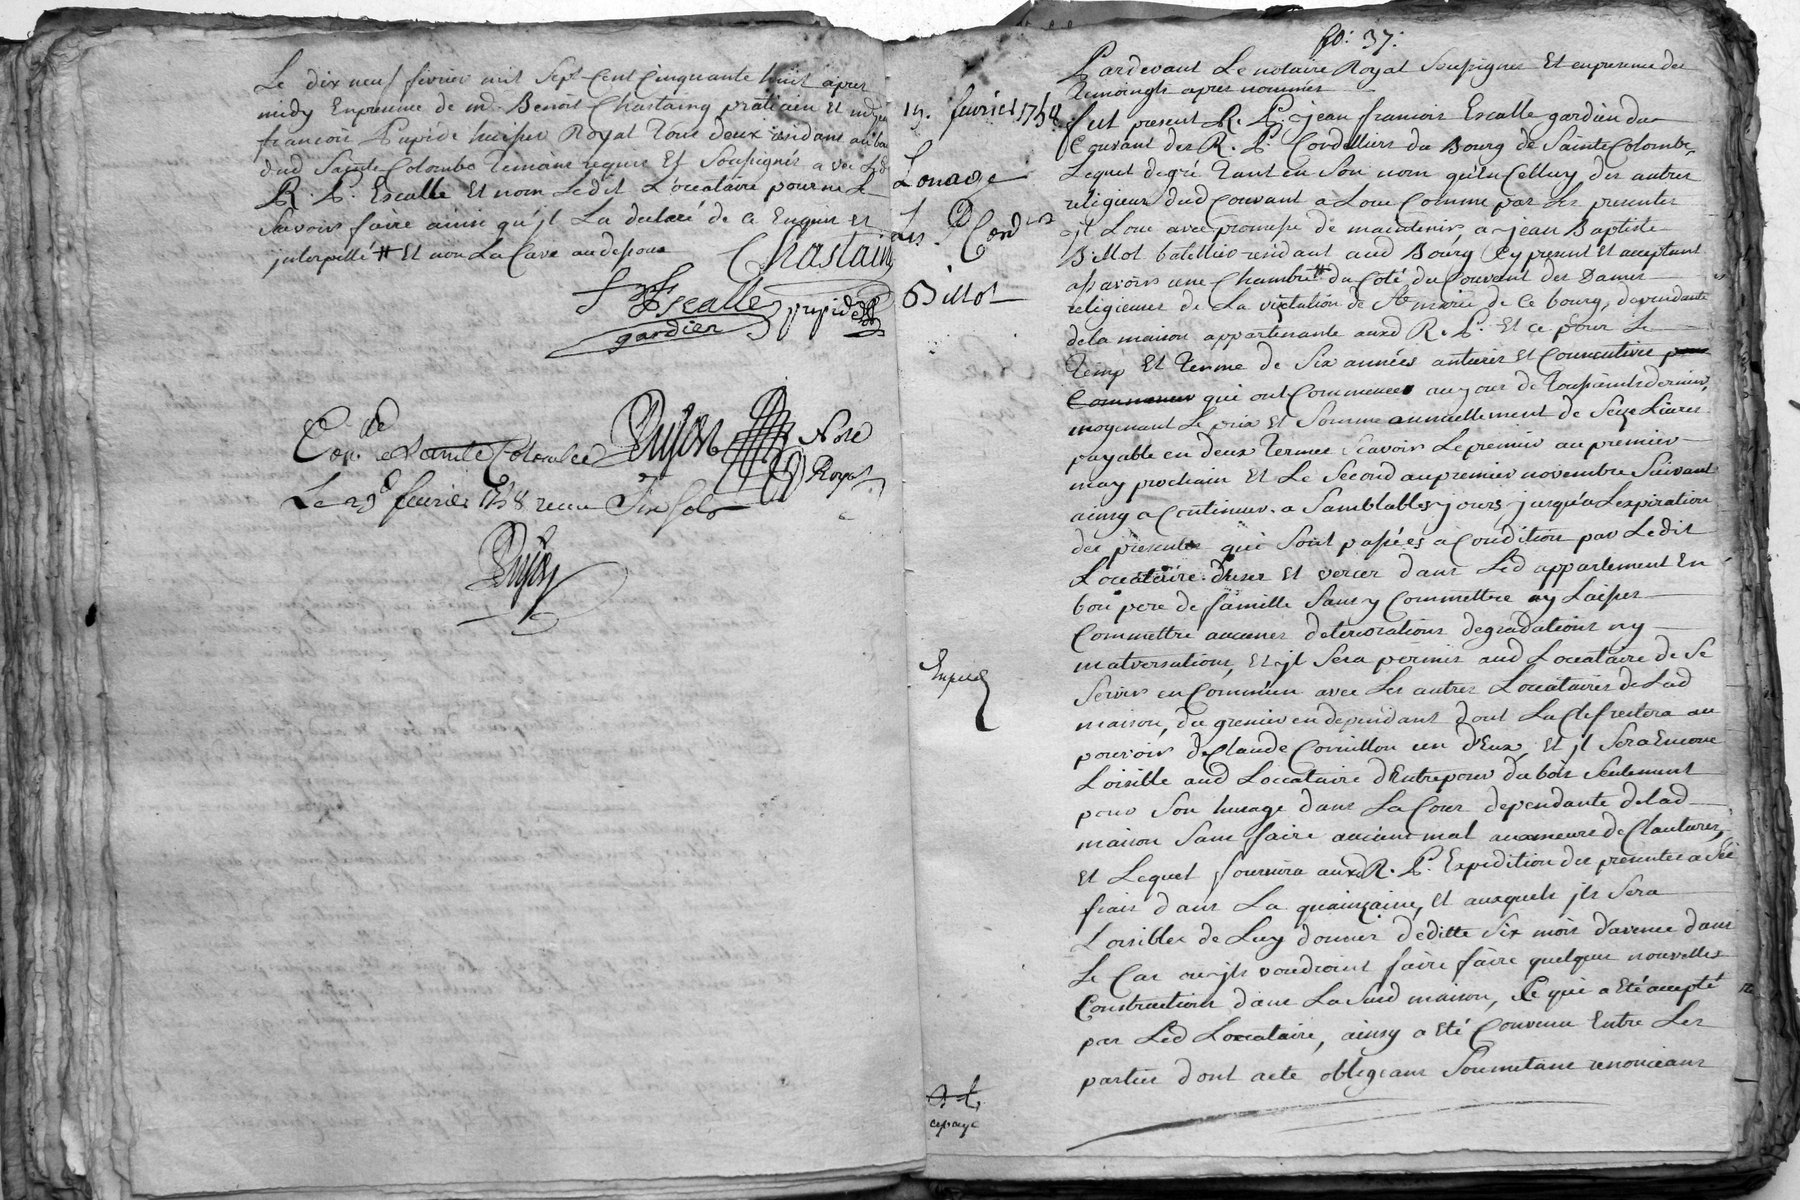 Le dix neuf fevrier mil Sept Cent Cinquante huit apres
midy En presence de Benoit Chastaing praticien et
francois Pupide huissier Royal tous deux residans au
dud Sainte Colombe temoins requis Et Soussignés avec Led
R. P. Escalle Et non Ledit Locataire pour ne le
Savoir faire ainsi qu'jl La declaré de ce Enquis et
jnterpellé # Et non La Cave au dessous
Chastaing
f. Escalle
gardien
pupide
Con. de Sainte Colombe Dujon Nore
Royal
Le 29e fevrier 1758 receu Six sols
Dujon
19. fevrier 1758
Louage
Les P. Cord
Billot
Expedié
fo: 37:
Pardevant Le notaire Royal Soussigné Et en presence des
temoingts apres nommés
fut present R. P. jean francois Escalle gardien du
Couvant des R. P. Cordelliers du Bourg de Sainte Colombe,
Lequel degré tant en Son nom qu'en Celluy des autres
religieux dud Couvant a Loué Comme par Les presentes
jl Loue avec promesse de maintenir a jean Baptiste
Billot batellier residant aud Bourg Cy present Et acceptant
assavoir une Chambre # du Coté du Couvant des Dames
religieuses de La visitation de Ste marie de Ce bourg, dependante
de la maison appartenante auxd R. P. Et ce pour Le
temp Et terme de Six années entieres Et Consecutives pour
Commencer qui ont Commencées au jour de toussaints dernier,
moyenant Le prix Et Somme annuellement de Seize Livres
payable en deux termes Scavoir Le premier au premier
may prochain Et Le Second au premier novembre Suivant
ainsy a Continuer a Samblables jours jusqu'a Lexpiration
des presentes qui Sont passées a Condition par Ledit
Locataire d'user Et verser dans Led appartement En
bon pere de famille Sans y Commettre ny Laisser
Commettre aucunes deteriorations degradations ny
malversations, Et jl Sera permis aud Locataire de Se
Servir en Commun avec Les autres Locataires de Lad
maison, du grenier en dependant dont La Clef restera au
pouvoir de Claude Cornillon un d'Eux, Et jl Sera Encore
Loisible aud Locataire d'Entreposer du bois Seulement
pour Son husage dans La Cour dependante de lad
maison Sans faire aucuns mal aucune de Clautures,
Et Lequel fournira auxd R. P. Expedition des presentes a Ses
frais dans La quainzaine, Et auxquels jls Sera
Loisibles de Luy donner deditte Six mois d'avance dans
Le Cas ou jls voudroient faire faire quelques nouvelles
Constructions dans La Susd maison, Ce qui a Eté accepté
par Led Locataire, ainsy a Eté Convenu Entre Les
parties dont acte obligeans Soumetans renonceans